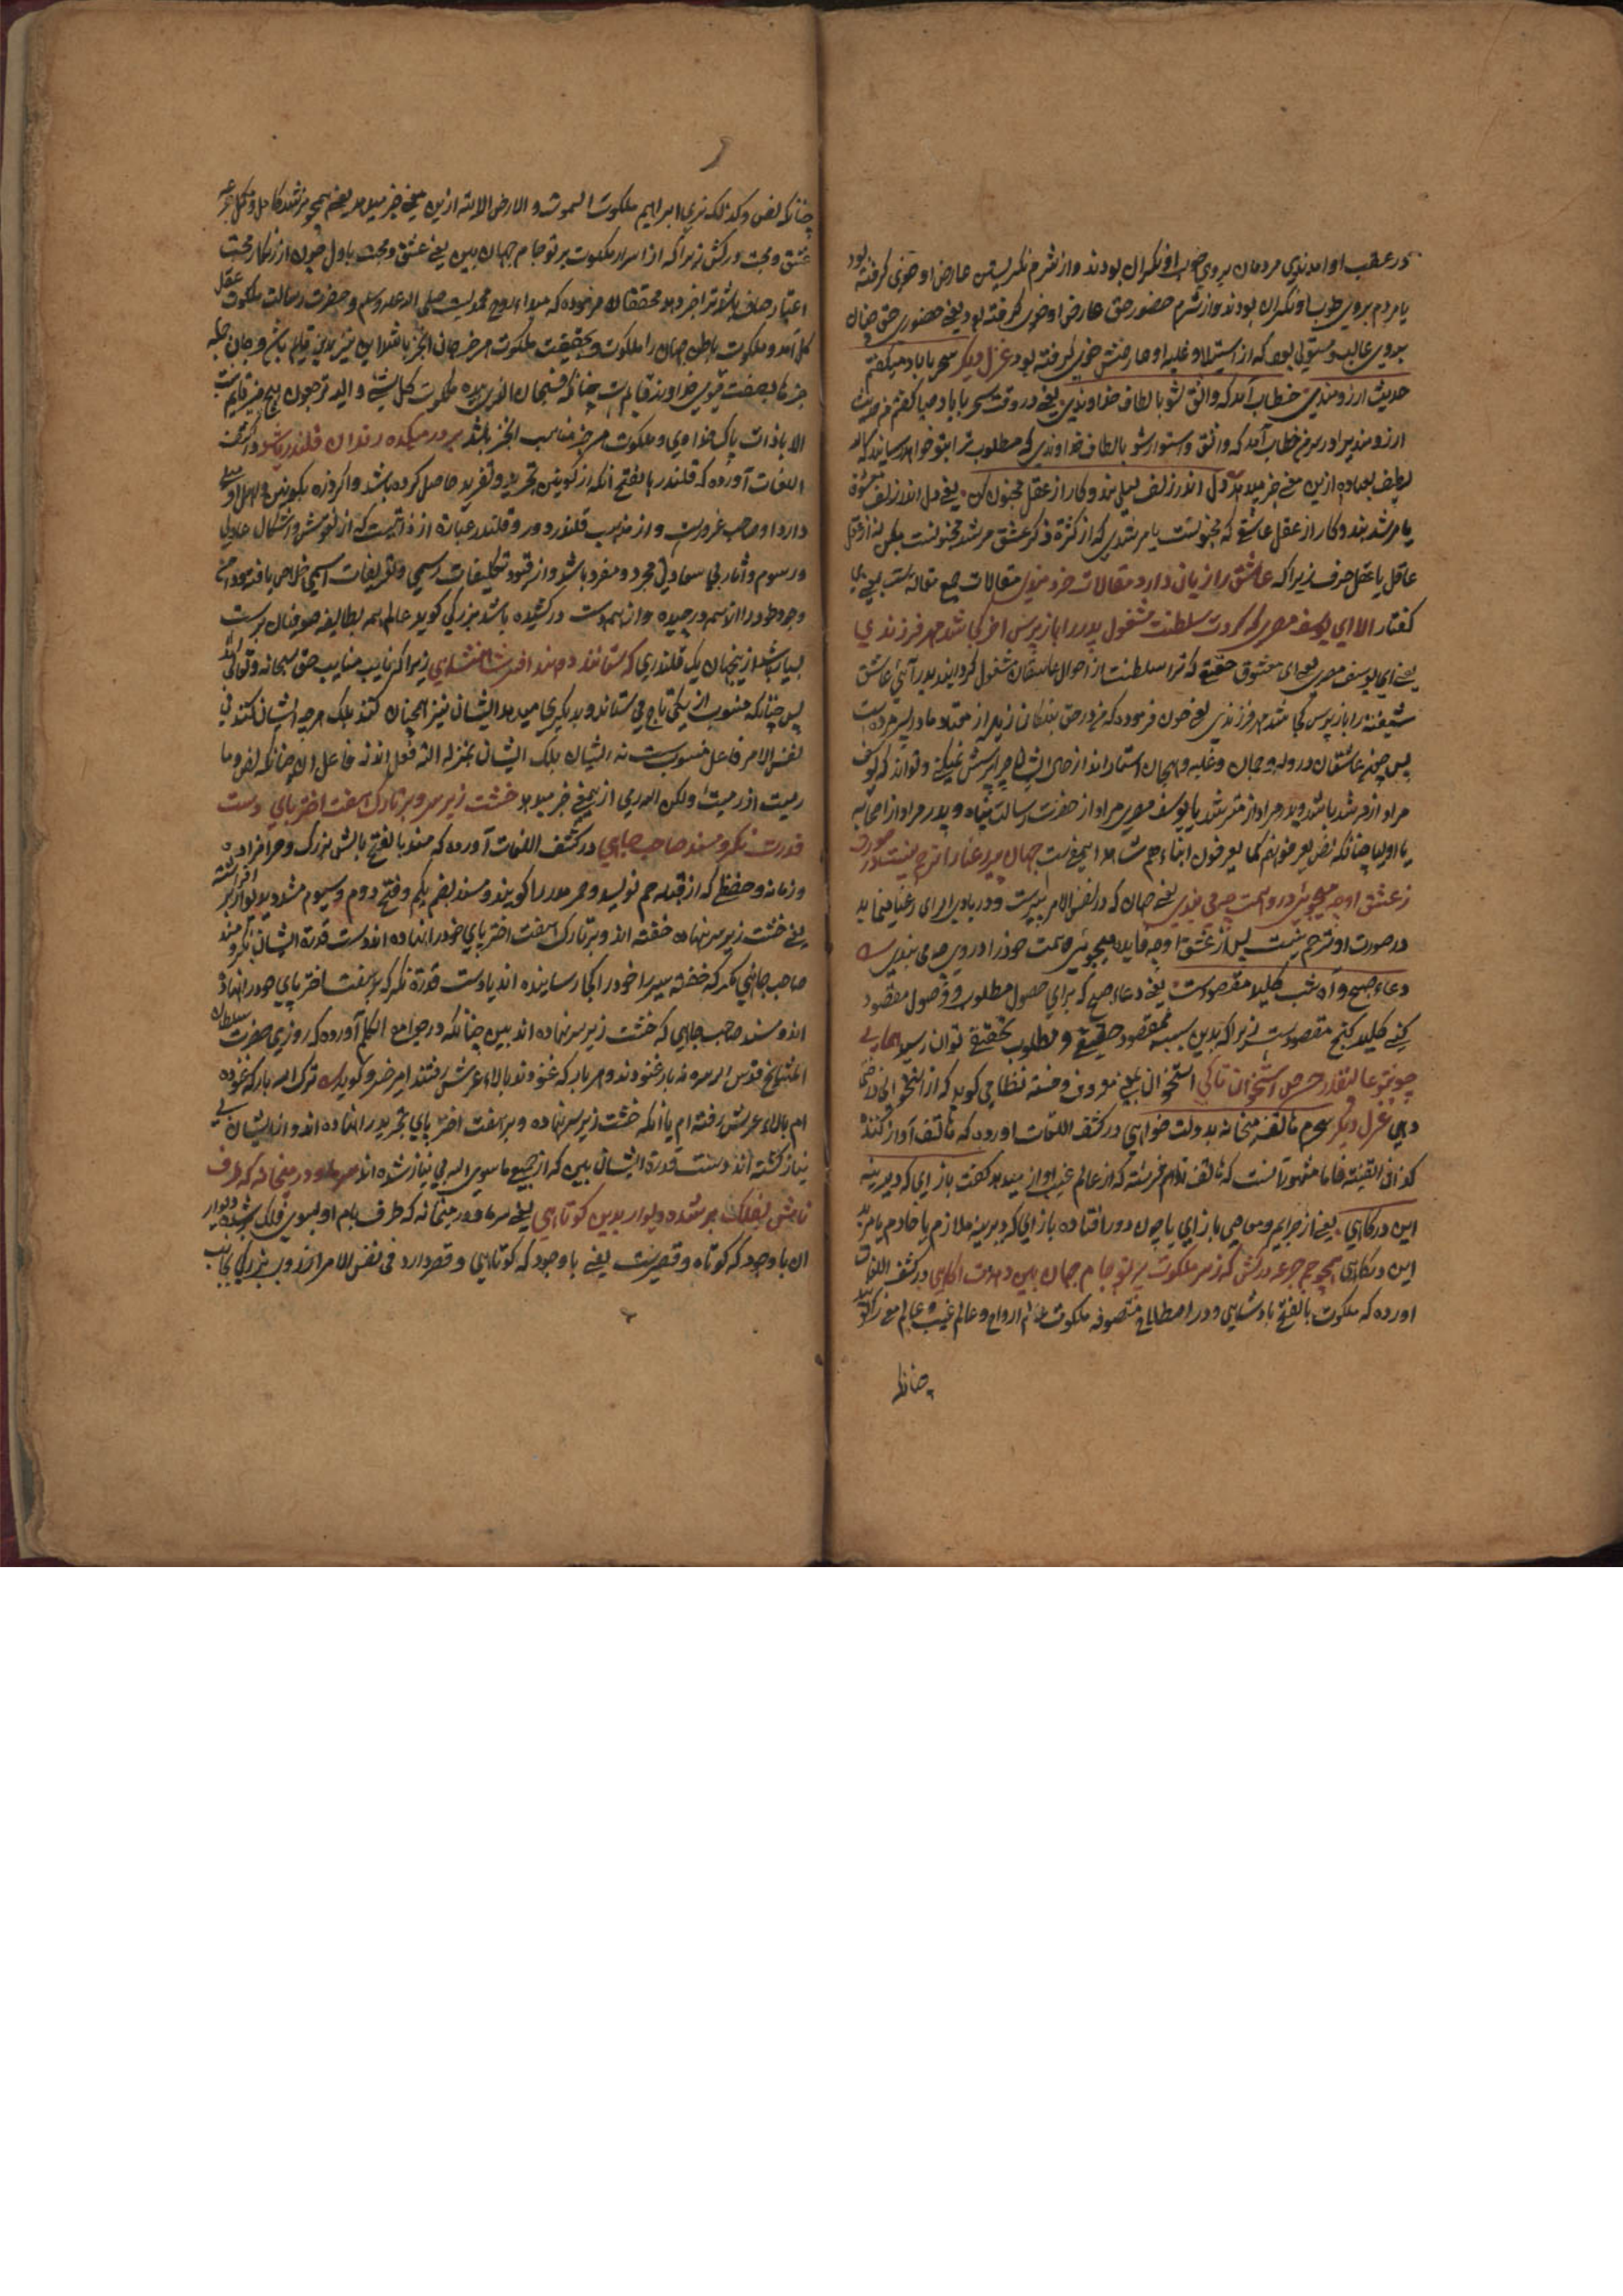 در عقب او امدندی مردمان بروی خوب او نکران بودند و از شرم نکریستن عارض او خوی کرفته بود
یا مردم بروی خوب او نکران بودند و از شرم حضور حق عارض او خوی کرفته بود یعنی حضوری حق چنان
بروی غالب و مستولی بود که از استیلا و غلبه او عارضش خوی کرفته بود غزل دیکر سحر با باد میکفتم
حدیث ارزومندی خطاب آمد که واثق شو بالطاف خداوندی یعنی در وقت سحر با باد صبا کفتم حدیث
ارزومندی خطاب آمد که واثق و استوار شو بالطاف خداوندی که مطلوب ترا بتو خواهد رسانید
ازین معنی خبر میدهد دل اندر زلف لیلی بند و کار از عقل مجنون کن یعنی دل اندر زلف معشوق
یا مرشد بند و کار از عقل عاشق که مجنونست یا مرشدی که از کثرة فکر عشق مرشد مجنونست بکن نه از عقل
عاقل یا عقل صرف زیرا که عاشق را زیان دارد مقالات خردمندی مقالات جمع مقاله است یعنی
کفتار الا ای یوسف مصری که کردت سلطنت مشغول پدر را باز پرس اخر کجا شد مهر فرزندی
یعنی ای یوسف مصری یعنی ای معشوق حقیقی که ترا سلطنت از احوال عاشقان مشغول کردانید پدر آنی عاشق
شیفته را باز پرس کجا شد مهر فرزندی یعنی چون فرموده که من در حق بندکان زیاده از هفتاد مادر
پس چون عاشقان در وله و هیمان و غلبه و هیجان
مراد از مرشد باشد و پدر مراد از مترشد یا یوسف مصری مراد از حضرت رسالت پناه و پدر مراد از اصحابه
یا اولیا چنانکه نص یعرفونه کما یعرفون ابناءهم شاهد اینمعنی ست جهان پیر رعنا را ترحم نیست در جبلت
ز عشق او چه میجوئی درو همت چه می بندی یعنی جهان که در نفس الامر پیرست و در بادی رای رعنا مینماید
در صورت او ترحم نیست پس از عشق او چه فایده میجوئی و همت خود را در وی چه می بندی
دعاء صبح و آه شب کلید کنج مقصودست یعنی دعاء صبح که برای حصول مطلوب و وصول مقصود
کنی کلید کنج مقصودست زیرا که بدین سبب بمقصود حقیقی و مطلوب تحقیقی توان رسید همایی
چون تو عالیقدر و حرص استخوان تا کی استخوان یعنی معروف و خسته نظامی کوید که از استخوان
دهی غزل دیکر سحرم هاتف میخانه بدولت خواهی در کشف اللغات اورده که هاتف آواز کننده
کذا فی القنیه فاما مشهور آنست که هاتف نام فرشته که از عالم غیب اواز میدهد کفت باز آی که دیرینه
این درکاهی یعنی از جرایم و معاصی باز آی یا چون دور افتاده باز آی که دیرینه ملازم یا خادم یا مرید
این درکاهی همچو جم جرعه درکش که ز سر ملکوت پرتو جام جهان بین دهدت اکاهی در کشف اللغات
اورده که ملکوت بالفتح بادشاهی و در اصطلاح متصوفه ملکوت عالم ارواح و عالم غیب و عالم معنی را کویند
چنانکه
چنانکه نص وکذلک نری ابراهیم ملکوت السموات والارض الایة ازین معنی خبر میدهد یعنی همچو مرشد کامل و مکمل جرعه
عشق و محبت درکش زیرا که از اسرار ملکوت پرتو جام جهان بین یعنی عشق و محبت یا دل چون از زنکار محبت
اغیار صاف باشد ترا خبر دهد محققان فرموده که مبدا روح محمدیست صلی الله علیه وسلم و حضرت رسالت ملکوت عقل
کل آمد و ملکوت باطن جهان را ملکوت و حقیقت ملکوت هر چیز جان
الا بذات پاک خداوندی و ملکوت هر چیز مناسب انچیز باشد بر در میکده رندان قلندر باشند در کشف
اللغات آورده که قلندر بالفتح آنکه از کونین تجرید و تفرید حاصل کرده باشد و اکر ذره بکونین میل
دارد او صاحب غرورست و از مذهب قلندر دور و قلندر عبارة از ذاتیست که از نقوش و اشکال عادتی
و رسوم و اثار بی سعادتی مجرد و مفرد باشد و از قیود تکلیفات رسمی و تعریفات اسمی خلاص یافته و دامن
وجود خود را از همه درچیده و از همه دست درکشیده باشد بزرکی کوید عالم همه بطالبه
باشد از ینجهان یک قلندری که ستانند و دهند افسر شاهنشاهی زیرا که نایب مناب حق سبحانه و تعالی اند
پس چنانکه منسوب از یکی تاج می ستاند و بدیکری میدهد ایشان نیز همچنان کنند بلکه هر چه ایشان کنند فی
نفس الامر فاعل منسوب ست نه ایشان بلکه ایشان بمنزله الة فعل اند نه فاعل چنانکه نص وما
رمیت اذ رمیت ولکن الله رمی ازینمعنی خبر میدهد خشت زیر سر و بر تارک هفت اختر پای دست
قدرت نکر و مسند صاحب جاهی در کشف اللغات آورده که مسند بالفتح بالش بزرک و سرافرازد
و زمانه و خطی که از قبله جم نویسند و مسند بضم یکم و فتح دوم و سیوم مشدد دیوار
یعنی خشت زیر سر نهاده خفته اند و بر تارک هفت اختر پای خود را نهاده اند دست قدرة ایشان نکر و مسند
صاحب جاهی نکر که خفته سر خود را کجا رسانیده اند یا دست قدرة نکر که بر هفت اختر پای خود را نهاده
اند و مسند صاحب جاهی که خشت زیر سر نهاده اند ببین چنانکه در جوامع الکلم آورده که روزی حضرت سلطان
المشایخ قدس الله سره نه بار غنودند و هر بار که غنودند بالاء عرش رفتند امیر خسرو کوید ترک الله بار که غنوده
ام بالاء عرش رفته ام یا آنکه خشت زیر سر نهاده و بر هفت اختر پای تجرید را نهاده اند و از ایشان بی
نیاز کشته اند دست قدرة ایشان ببین که از جمیع ما سوی الله بی نیاز شده اند سر ما و در میخانه که طرف
بامش بفلک بر شده دیوار بدین کوتاهی یعنی سر ما و در میخانه که طرف بام او بسوی فلک بر شده دیوار
ان با وجود که کوتاه و قصیرست یعنی با وجود که کوتاهی و قصر دارد فی نفس الامر